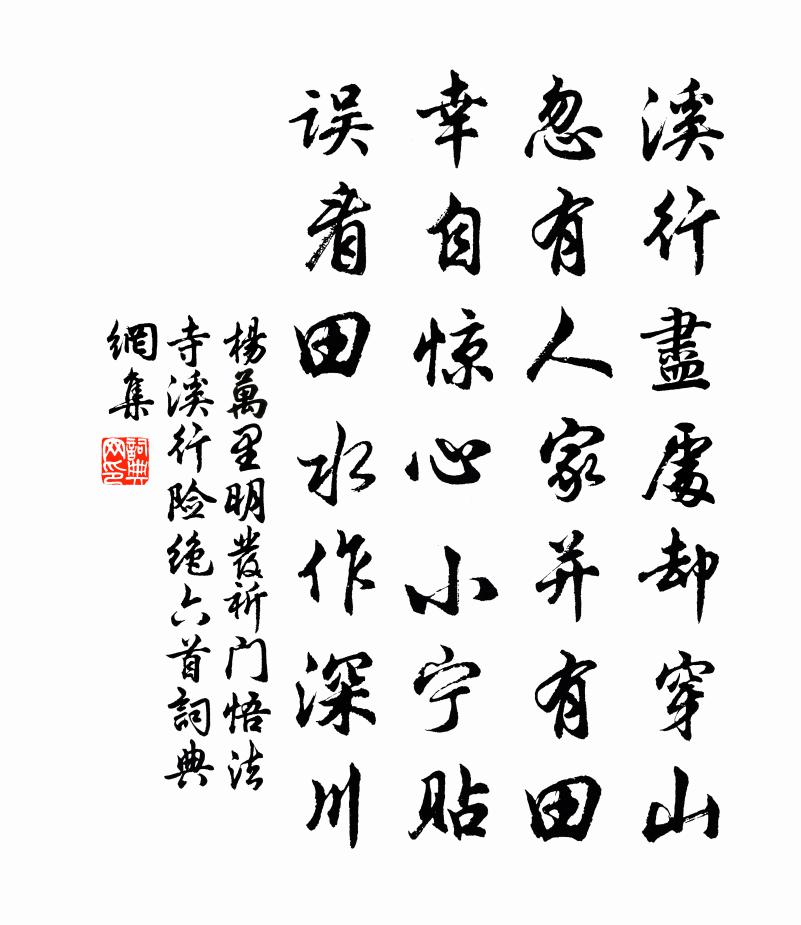 溪行盡處却穿山
忽有人家并有田
幸自惊心小宁貼
误看田水作深川
楊萬里明發祈门悟法
寺溪行险绝六首詞典
網集
詞典
网印